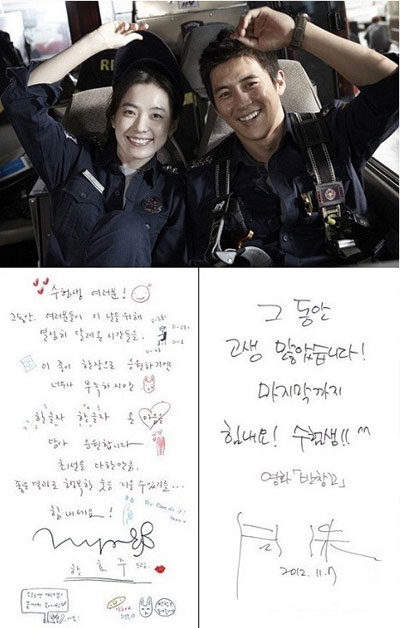 RE
수험생 여러분!
그동안. 여러분들이 이 날을 위해
열심히 달려온 시간들을.
이 종이 한장으로 응원하기엔
너무나 부족하지만
한글자 한글자 온 마음을
담아 응원합니다
최선을 다한만큼.
좋은결과로 행복한 웃음 지을 수있기를...
힘내세요!
You Can do it!
한효주
그 동안
고생 많았습니다!
마지막까지
힘내요! 수험생!! ^^
영화「반창꼬」
2012. 11. 7